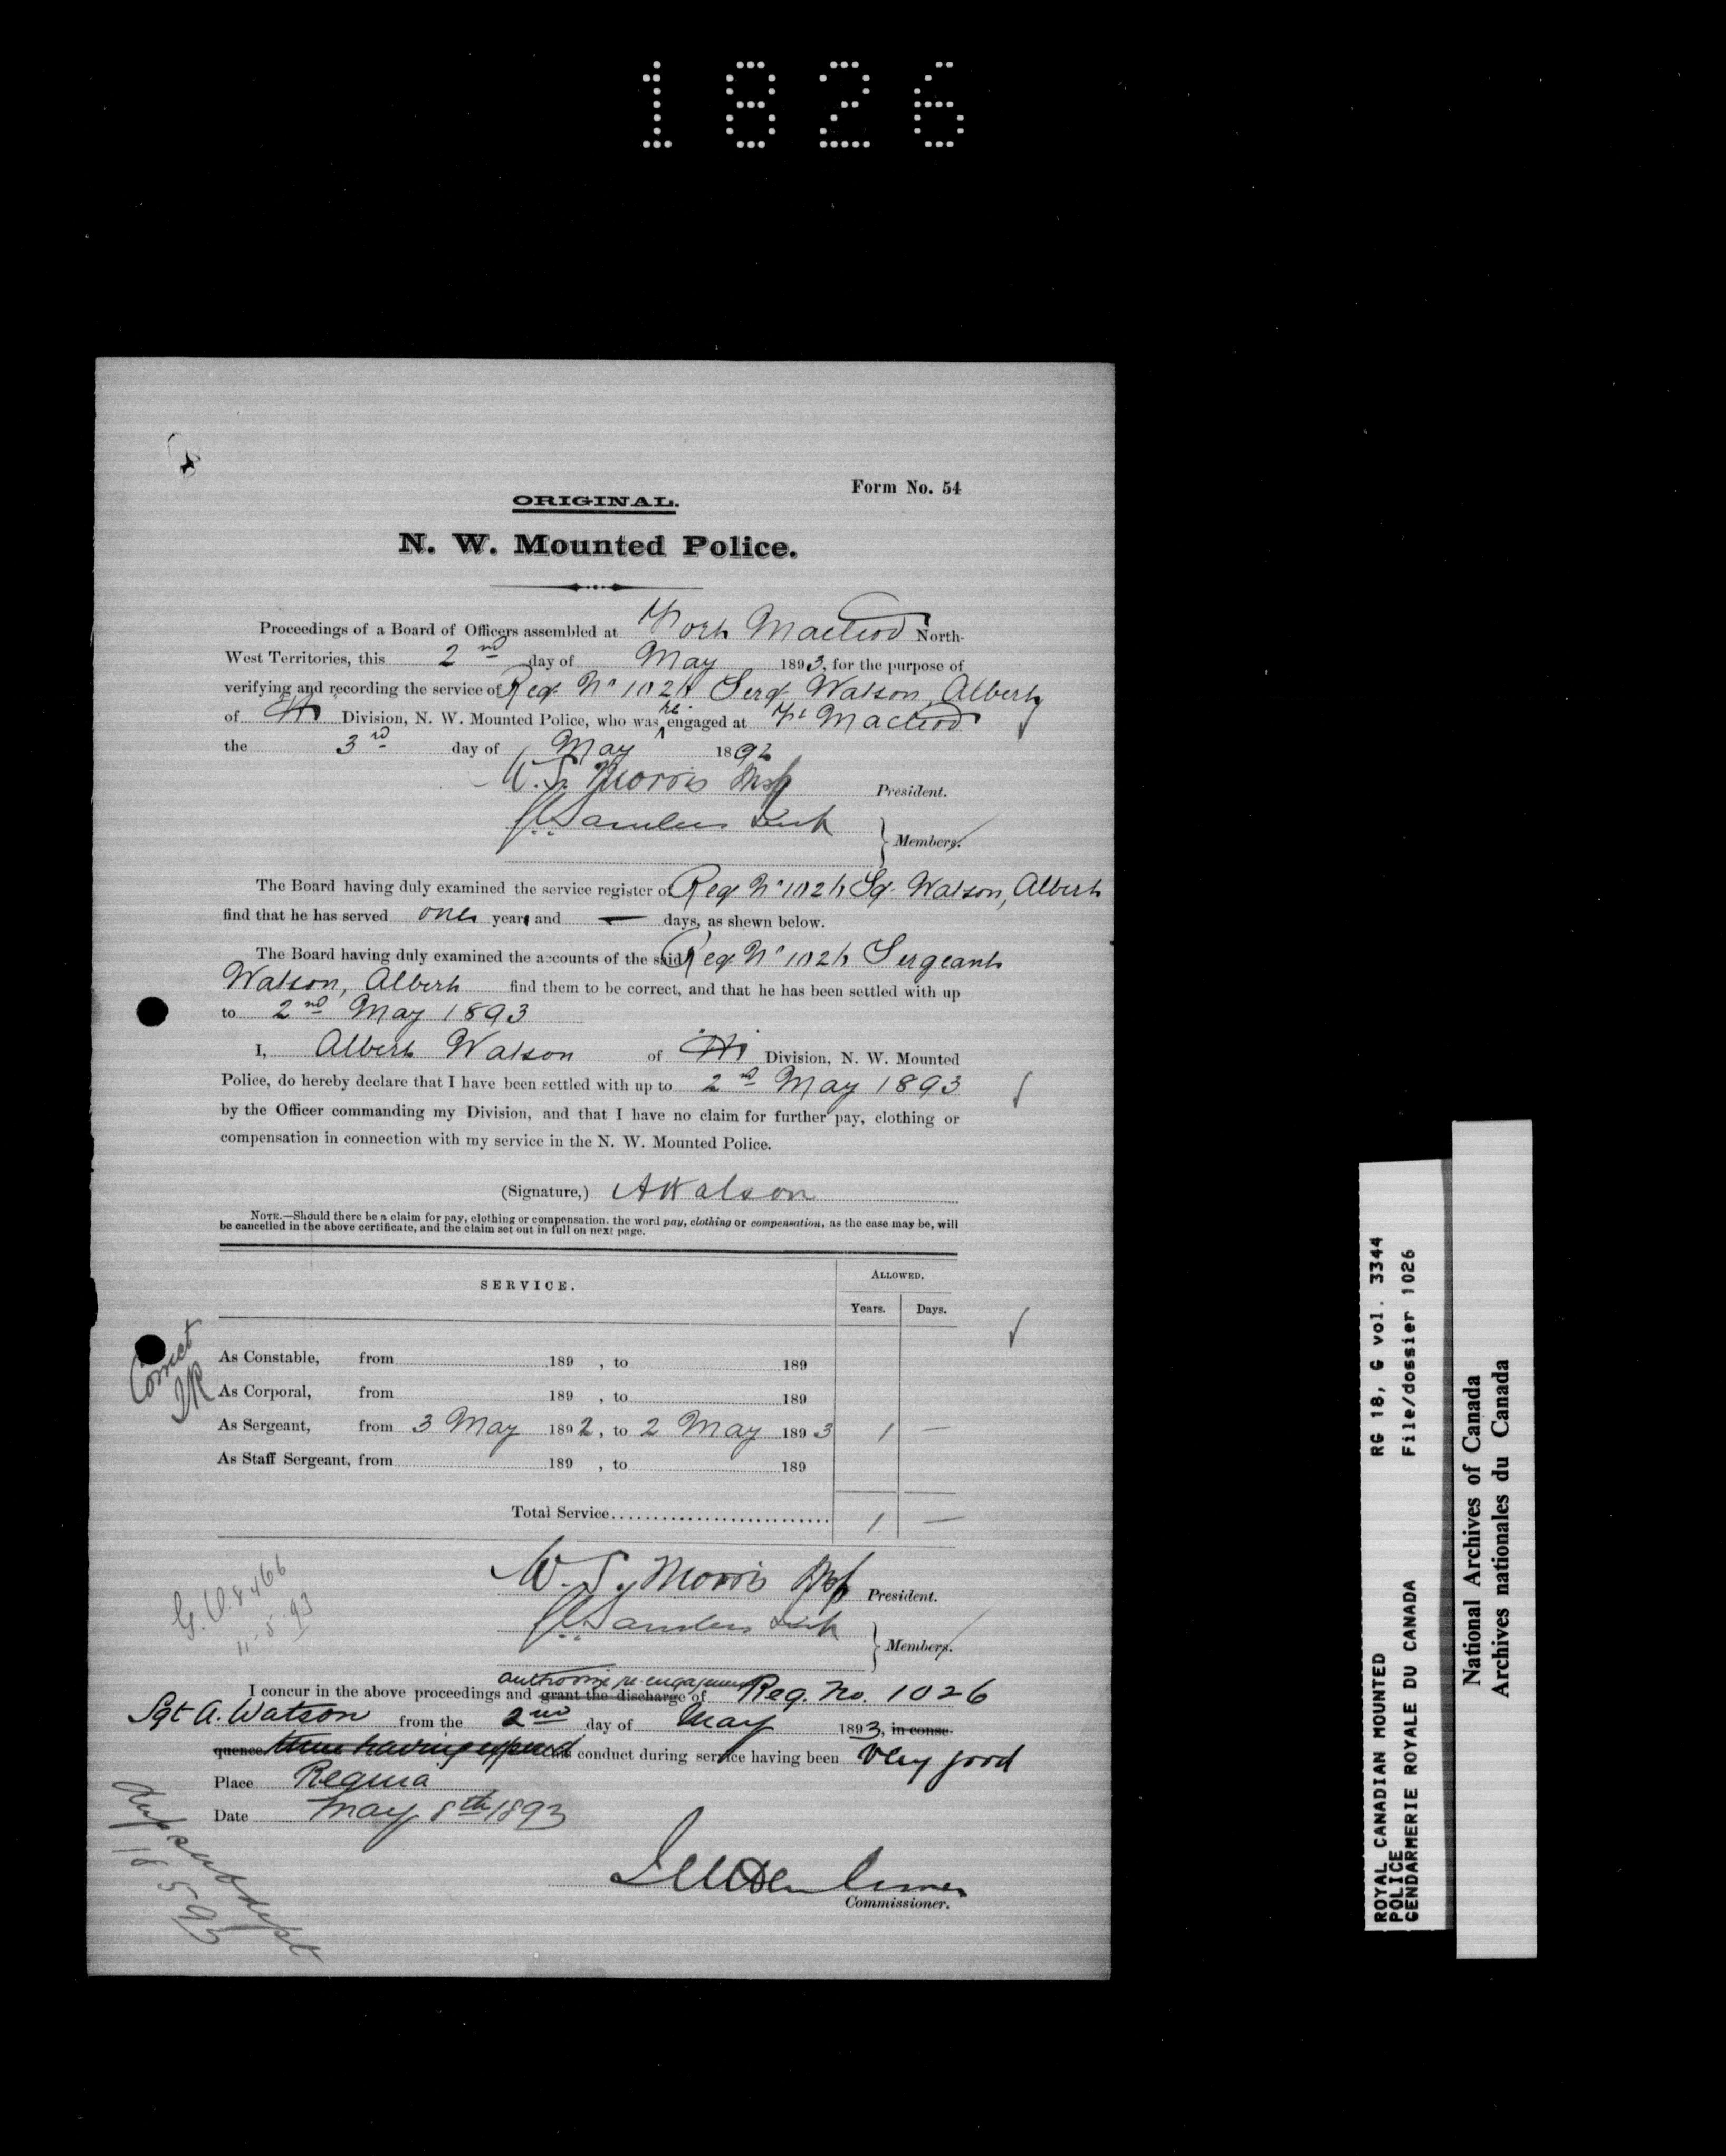 1826
Form No. 54
ORIGINAL.
N. W. Mounted Police.
Proceedings of a Board of Officers assembled at Fort Macleod North-
West Territories, this 2nd day of May 1893, for the purpose of
verifying and recording the service of Reg. No 1026 Sergt. Watson, Albert
of "H" Division, N. W. Mounted Police, who was re-engaged at Ft Macleod
the 3rd day of May 1892
W. S. Morris Insp President.
Sanders Insp
Members.
The Board having duly examined the service register of Reg No 1026 Sgt. Watson, Albert
find that he has served one year and — days, as shewn below.
The Board having duly examined the accounts of the said Reg No 1026 Sergeant
Watson, Albert find them to be correct, and that he has been settled with up
to 2nd May 1893
I, Albert Watson of "H" Division, N. W. Mounted
Police, do hereby declare that I have been settled with up to 2nd May 1893
by the Officer commanding my Division, and that I have no claim for further pay, clothing or
compensation in connection with my service in the N. W. Mounted Police.
(Signature,) A Watson
NOTE.—Should there be a claim for pay, clothing or compensation, the word pay, clothing or compensation, as the case may be, will
be cancelled in the above certificate, and the claim set out in full on next page.
SERVICE. ALLOWED.
Years. Days.
Correct
As Constable, from 189 , to 189
As Corporal, from 189 , to 189
As Sergeant, from 3 May 1892, to 2 May 1893 1 —
As Staff Sergeant, from 189 , to 189
Total Service.......................... 1 —
G.O. 8466
11-5-93
W. S. Morris Insp President.
Sanders Insp
Members.
authorize re-engagement
I concur in the above proceedings and grant the discharge of Reg. No. 1026
Sgt A. Watson from the 2nd day of May 1893, in conse-
quence time having expired his conduct during service having been very good
Place Regina
Date May 8th 1893
Commissioner.
18 5 93
RG 18, G vol. 3344
File/dossier 1026
ROYAL CANADIAN MOUNTED
POLICE
GENDARMERIE ROYALE DU CANADA
National Archives of Canada
Archives nationales du Canada